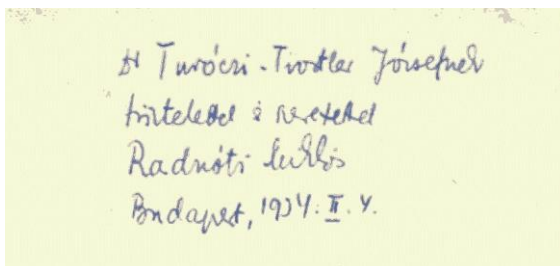 Dr Turóczi-Trostler Józsefnek
tisztelettel és szeretettel
Radnóti Miklós
Budapest, 1934. II. 4.